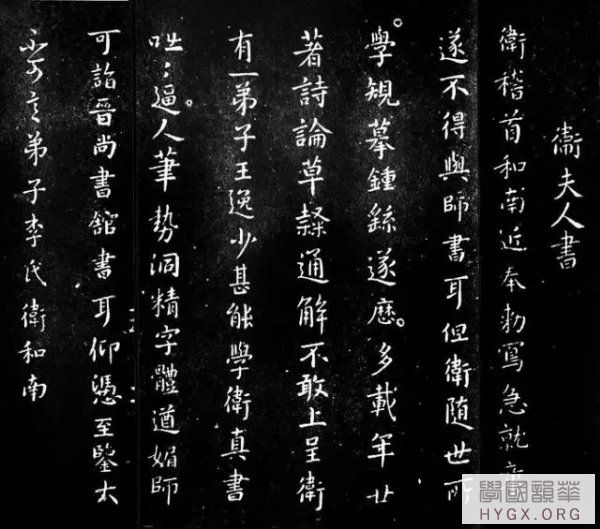 衛夫人書
衛稽首和南近奉勑寫急就章
遂不得與師書耳但衛隨世所
學規摹鍾繇遂歷多載年廿
著詩論草隸通解不敢上呈衛
有一弟子王逸少甚能學衛真書
咄〻逼人筆勢洞精字體遒媚師
可詣晉尚書舘書耳仰憑至鑒大
不可言弟子李氏衛和南
學國韻華
HYGX.ORG